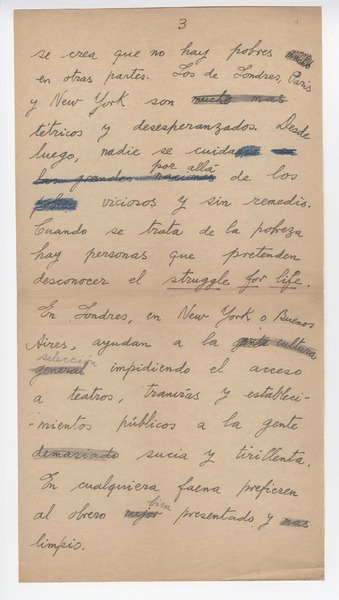 3
se crea que no hay pobres
en otras partes. Los de Londres, Paris
y New York son mucho mas
tétricos y desesperanzados. Desde
luego, nadie se cuida
por allá
las grandes naciones de los
viciosos y sin remedio.
Cuando se trata de la pobreza
hay personas que pretenden
desconocer el struggle for life.
En Londres, en New York o Buenos
Aires, ayudan a la gente cultura
selección
general impidiendo el acceso
a teatros, tranvías y estableci-
mientos públicos a la gente
demasiado sucia y tirillenta.
En cualquiera faena prefieren
bien
al obrero mejor presentado y mas
limpio.